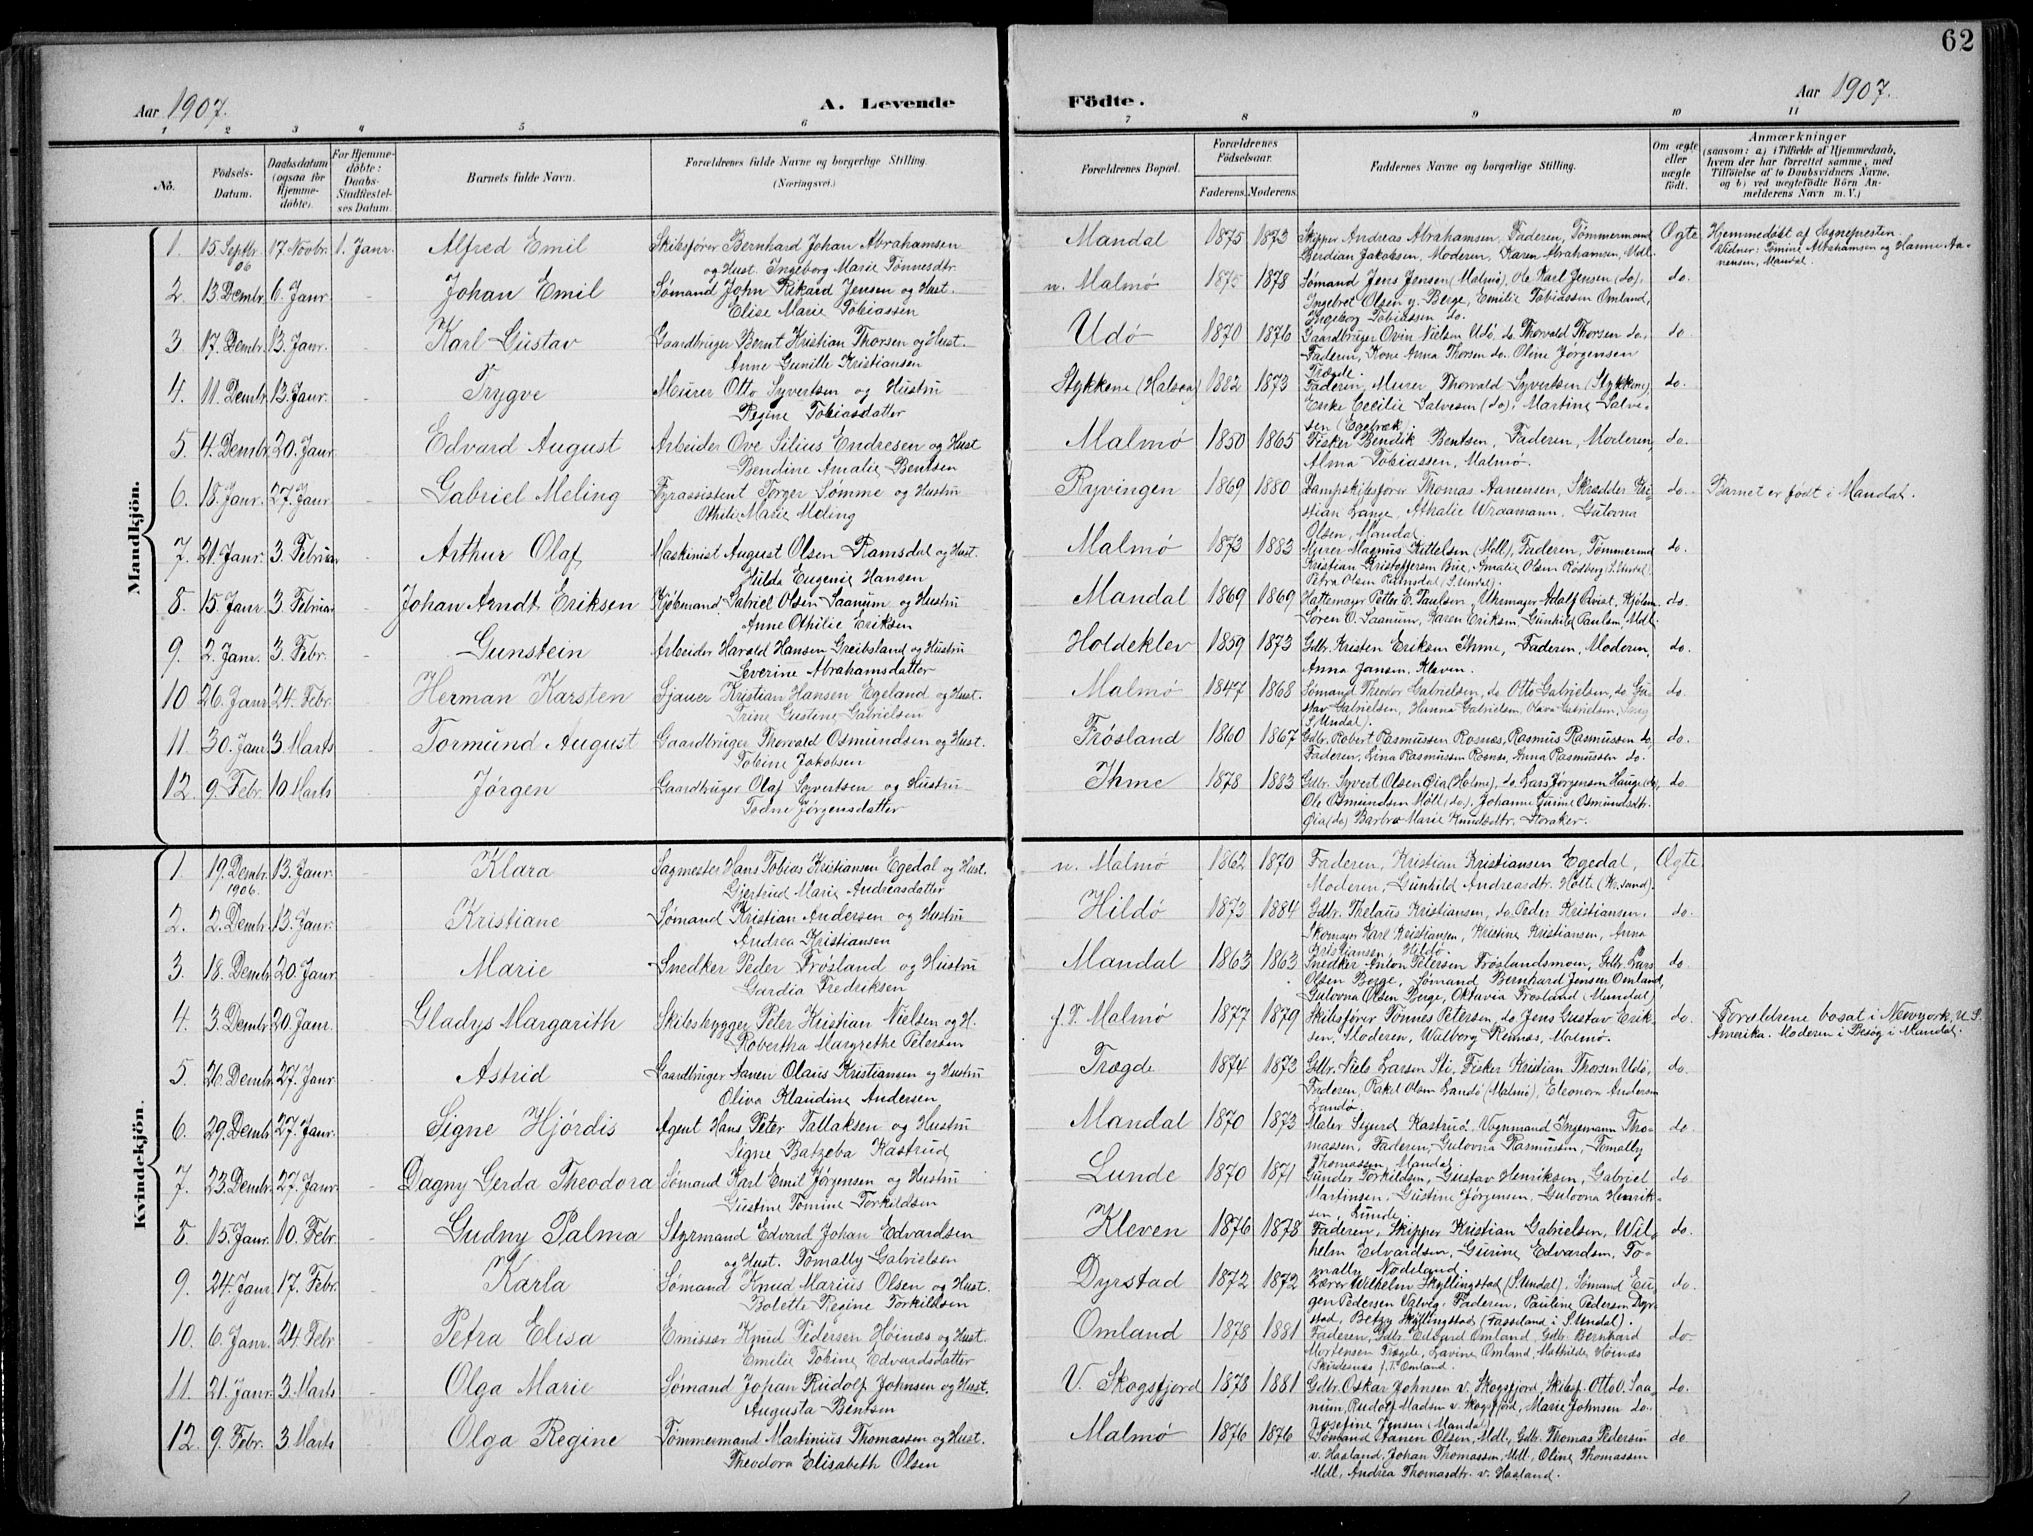 62
Aar 1907.
A. Levende
Fødte.
Aar 1907.
1 2 3 4 5 6 7 8 9 10 11
No.
Fødsels-Datum.
Daabsdatum (ogsaa for Hjemmedøbte).
For Hjemmedøbte: Daabs-Stadfæstelses Datum.
Barnets fulde Navn.
Forældrenes fulde Navne og borgerlige Stilling. (Næringsvei.)
Forældrenes Bopæl.
Forældrenes Fødselsaar.
Faderens. Moderens.
Faddernes Navne og borgerlige Stilling.
Om ægte eller uægte født.
Anmærkninger (saasom: a) i Tilfælde af Hjemmedaab, hvem der har forrettet samme, med Tilføielse af to Daabsvidners Navne, og b) ved uægtefødte Børn Anmelderens Navn m. V.)
Mandkjön.
1. 15 Septbr. 06 17 Novbr. 1. Janr. Alfred Emil Skibsfører Bernhard Johan Abrahamsen og Hust. Ingeborg Marie Tønnesdtr. Mandal 1875 1873 Skipper Andreas Abrahamsen, Faderen, Tømmermand Berdian Jakobsen, Moderen, Karen Abrahamsen, Mdl. Ægte Hjemmedøbt af Sognepresten. Vidner: Tomine Abrahamsen og Hanne Aanensen, Mandal.
2. 13 Dembr. 6. Janr. Johan Emil Sømand John Rikard Jensen og Hust. Elise Marie Tobiassen n. Malmø 1875 1878 Sømand Jens Jensen (Malmø), do Karl Jensen (do), Ingebret Olsen y. Berge, Emilie Tobiassen Omland, Ingeborg Tobiassen do. do.
3. 17. Dembr. 13. Janr. Karl Gustav Gaardbruger Bernt Kristian Thorsen og Hust. Anne Gunille Kristiansen Udø 1870 1876 Gaardbruger Ovin Nielsen Udø, do Thorvald Thorsen do., Faderen, Kone Anna Thorsen do. Oline Jørgensen Trægde. do
4. 11. Dembr. 13. Janr. Trygve Murer Otto Syvertsen og Hustru Regine Tobiasdatter Stykkene (Halsaa) 1882 1873 Faderen, Murer Thorvald Syvertsen (Stykkene), Enke Cecilie Salvesen (do), Martine Salvesen (Egebæk). do.
5. 4. Dembr. 20. Janr. Edvard August Arbeider Ove Silius Endresen og Hust Bendine Amalie Bentsen Malmø 1850 1865 Fisker Bendik Bentsen, Faderen, Moderen, Alma Tobiassen, Malmø. do.
6. 18. Janr. 27. Janr. Gabriel Meling Fyrassistent Torger Sømme og Hustru Othilie Marie Meling Ryvingen 1869 1880 Dampskibsfører Thomas Aanensen, Skrædder Kristian Lange, Athalie Wraamann, Gulovna Olsen, Mandal do. Barnet er født i Mandal.
7. 21. Janr. 3. Februar Arthur Olaf Maskinist August Olsen Ramsdal og Hust. Hilda Eugenie Hansen Malmø 1873 1883 Murer Magnus Kittelsen (Mdl), Faderen, Tømmermd Kristian Kristoffersen Bue, Amalie Olsen Rødberg (S.Undal), Petra Olsen Ramsdal (S.Undal). do.
8. 15. Janr. 3. Februar Johan Arndt Eriksen Kjøbmand Gabriel Olsen Saanum og Hustru Anne Othilie Eriksen Mandal 1869 1869 Hattemager Petter E. Paulsen, Uhrmager Adolf Qvist, Kjøbm. Søren O. Saanum, Karen Eriksen, Gunhild Paulsen, Mdl. do.
9. 2. Janr. 3. Febr. Gunstein Arbeider Harald Hansen Greibsland og Hustru Severine Abrahamsdatter Holdeklev 1859 1873 Gdbr. Kristen Eriksen Ihme, Faderen, Moderen, Anna Jansen, Kleven. do.
10 26. Janr 24. Febr. Herman Karsten Sjauer Kristian Hansen Egeland og Hust. Trine Gustine Gabrielsen Malmø 1847 1868 Sømand Theodor Gabrielsen, do Otto Gabrielsen, do Gustav Gabrielsen, Hanna Gabrielsen, Olava Gabrielsen, S.Undal). do.
11. 30. Janr. 3 Marts Tormund August Gaardbruger Thorvald Osmundsen og Hust. Tobine Jakobsen Frøsland 1860 1867 Gdbr. Robert Rasmussen Rosnæs, Rasmus Rasmussen do, Faderen, Lina Rasmussen Rosnæs, Anna Rasmussen do. do.
12. 9. Febr. 10 Marts Jørgen Gaardbruger Olaf Syvertsen og Hustru Todne Jørgensdatter Ihme 1878 1883 Gdbr. Syvert Olsen Øia (Holme), do Lars Jørgensen Hauge (do), Ole Osmundsen Møll (do), Johanne Gurine Osmundsdtr. Øia (do) Barbro Marie Knudsdtr. Storaker. do
Kvindekjön.
1 19. Dembr. 1906. 13. Janr. Klara Sagmester Hans Tobias Kristiansen Egedal og Hust. Gjertrud Marie Andreasdatter n. Malmø 1862 1870 Faderen, Kristian Kristiansen Egedal, Moderen, Gunhild Andreasdtr. Holte (Kr.sand). Ægte
2. 2. Dembr. 13. Janr. Kristiane Sømand Kristian Andersen og Hustru Andrea Kristiansen Hildø 1873 1884 Gdbr. Thelaus Kristiansen, do. Peder Kristiansen. Skomager Karl Kristiansen, Kristine Kristiansen, Anna Kristiansen, Hildø. do.
3. 18. Dembr. 20. Janr. Marie Snedker Peder Frøsland og Hustru Gardia Fredriksen Mandal 1863 1863 Snedker Anton Petersen Frøslandsmoen, Gdbr. Lars Olsen Berge, Sømand Bernhard Jensen Omland, Gulovna Olsen Berge, Oktavia Frøsland (Mandal) do
4. 3. Dembr. 20. Janr. Gladys Margarith Skibsbygger Peter Kristian Nielsen og H. Robertha Margrethe Petersen f. T. Malmø 1877 1879 Skibsfører Tønnes Petersen, do Jens Gustav Eriksen, Moderen, Walborg Reinnæs, Malmø. do. Forældrene bosat i Newyork, U.S. Amerika. Moderen i Besøg i Mandal.
5. 26. Dembr. 27. Janr Astrid Gaardbruger Aanen Olaus Kristiansen og Hustru Oliva Klaudine Andersen, Trægde 1874 1873 Gdbr. Niels Larsen Sti, Fisker Kristian Thorsen Udø, Faderen, Rakel Olsen Landø (Malmø), Eleonora Andersen Landø. do.
6. 29. Dembr. 27. Janr. Signe Hjördis Agent Hans Peter Tallaksen og Hustru Signe Batzeba Kastrud Mandal 1870 1873 Maler Sigurd Kastrud, Vognmand Ingemann Thomassen, Faderen, Gulovna Rasmussen, Tomally Thomassen, Mandal. do.
7. 23. Dembr. 27. Janr. Dagny Gerda Theodora Sømand Karl Emil Jørgensen og Hustru Gustine Tomine Torkildsen Lunde 1870 1871 Gunder Torkildsen, Gustav Henriksen, Gabriel Martinsen, Gustine Jørgensen, Gulovna Henriksen, Lunde. do
8. 15. Janr. 10. Febr. Gudny Palma Styrmand Edvard Johan Edvardsen og Hust. Tomally Gabrielsen Kleven 1876 1878 Faderen, Skipper Kristian Gabrielsen, Wilhelm Edvardsen, Gurine Edvardsen, Tomally Nodeland. do.
9. 24. Janr. 17. Febr. Karla Sømand Knud Marius Olsen og Hust. Bolette Regine Torkildsen Dyrstad 1872 1872 Lærer Wilhelm Skyllingstad (S.Undal). Sømand Eugen Pedersen Valvig, Faderen, Pauline Pedersen Dyrstad, Betzy Skyllingstad (Fasseland i S.Undal). do.
10. 6. Janr. 24. Febr. Petra Elisa Emissær Knud Pedersen Høinæs og Hust. Emilie Tobine Edvardsdatter Omland 1878 1881 Faderen, Gdbr. Edvard Omland, Gdbr. Bernhard Mortensen Trægde, Lavine Omland, Mathilde Høinæs (Skjernæs f.T. Omland. do
11. 21. Janr. 3. Marts Olga Marie Sømand Johan Rudolf Johnsen og Hust. Augusta Bentsen V. Skogsfjord 1873 1881 Gdbr. Oskar Johnsen v. Skogsfjord, Skibsf. Otto O. Saanum, Rudolf Madsen v. Skogsfjord, Marie Johnsen do. Josefine Jensen (Mandal) do.
12. 9. Febr. 3. Marts Olga Regine Tømmermand Martinius Thomassen og Hust. Theodora Elisabeth Olsen Malmø 1876 1876 Sømand Aanen Olsen, Mdl., Gdbr. Thomas Pedersen v. Hasland, Johan Thomassen, Mdl., Oline Thomassen Mdl, Andrea Thomasdtr. v. Hasland. do